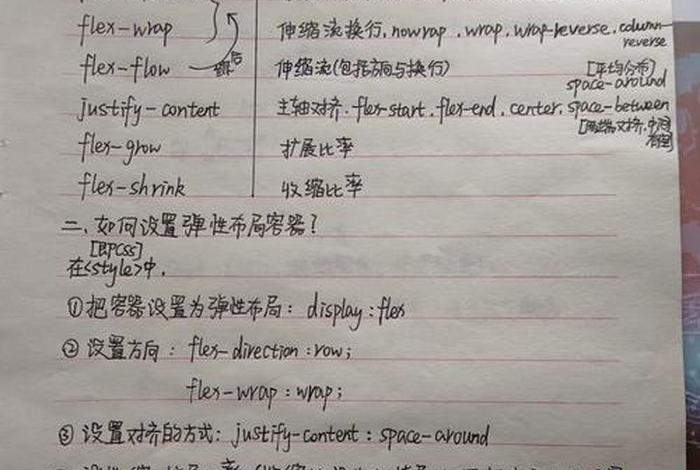 flex-wrap 伸缩流换行.nowrap.wrap.wrap-reverse.column-reverse
flex-flow 缩后 伸缩流(包括方向与换行)
[平均分布]
space-around
justify-content 主轴对齐.flex-start.flex-end.center.space-between
[两端对齐.中间有空]
flex-grow 扩展比率
flex-shrink 收缩比率
二、如何设置弹性布局容器?
[即css]
在<style>中.
①把容器设置为弹性布局: display:flex
②设置方向: flex-direction:row;
flex-wrap:wrap;
③设置对齐的方式: justify-content:space-around